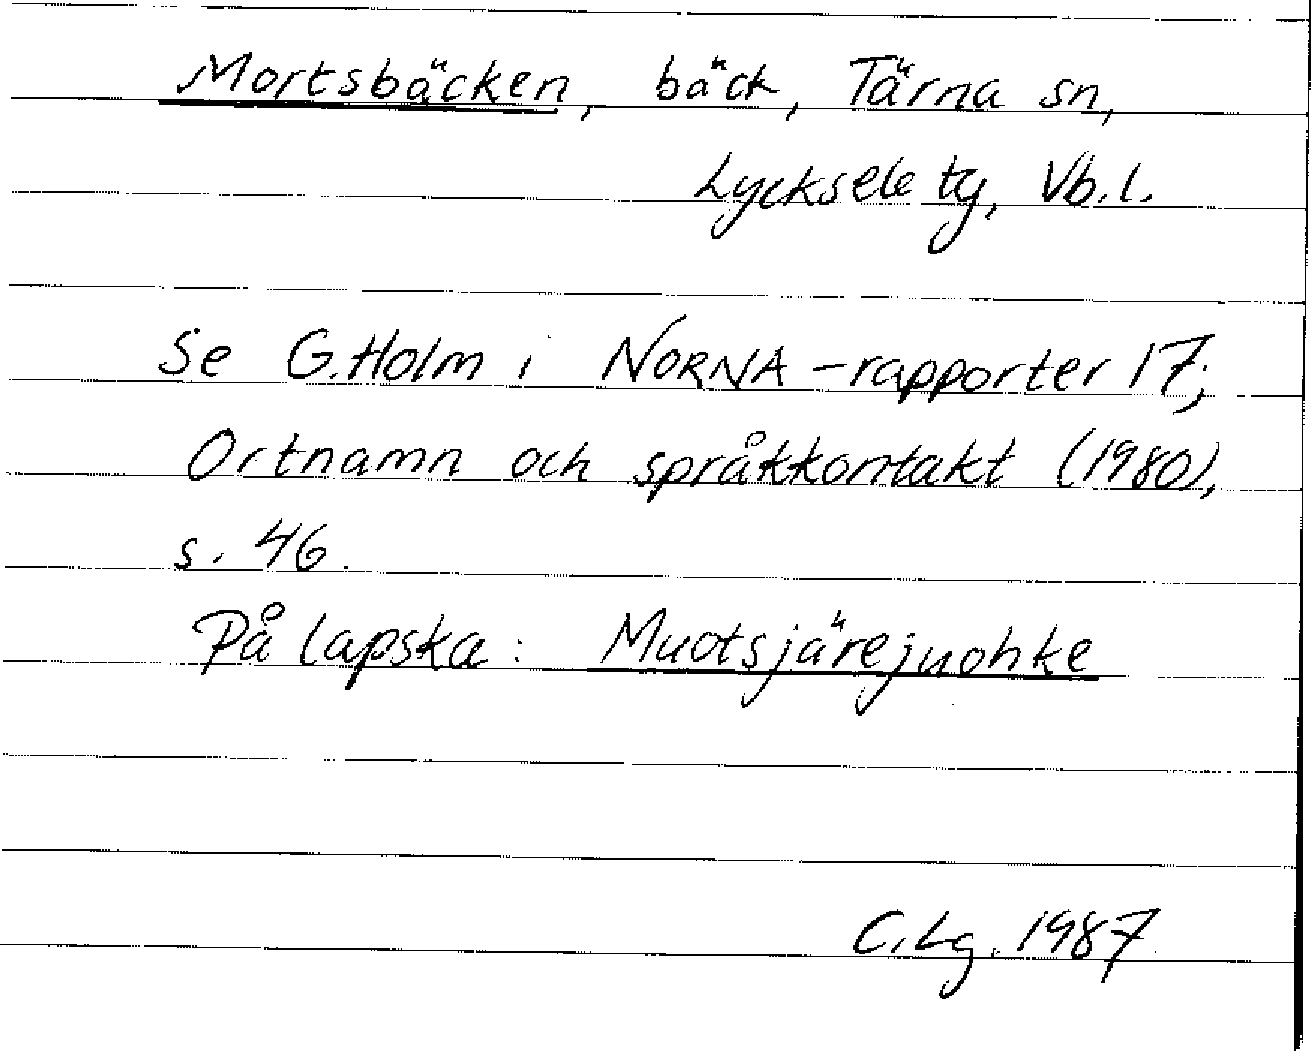 Mortsbäcken, bäck, Tärna sn,
Lycksele tg, Vb.l.
Se G.Holm i NORNA-rapporter 17;
Ortnamn och språkkontakt (1980),
s. 46.
På lapska: Muotsjärejuohke
C.Lg. 1987